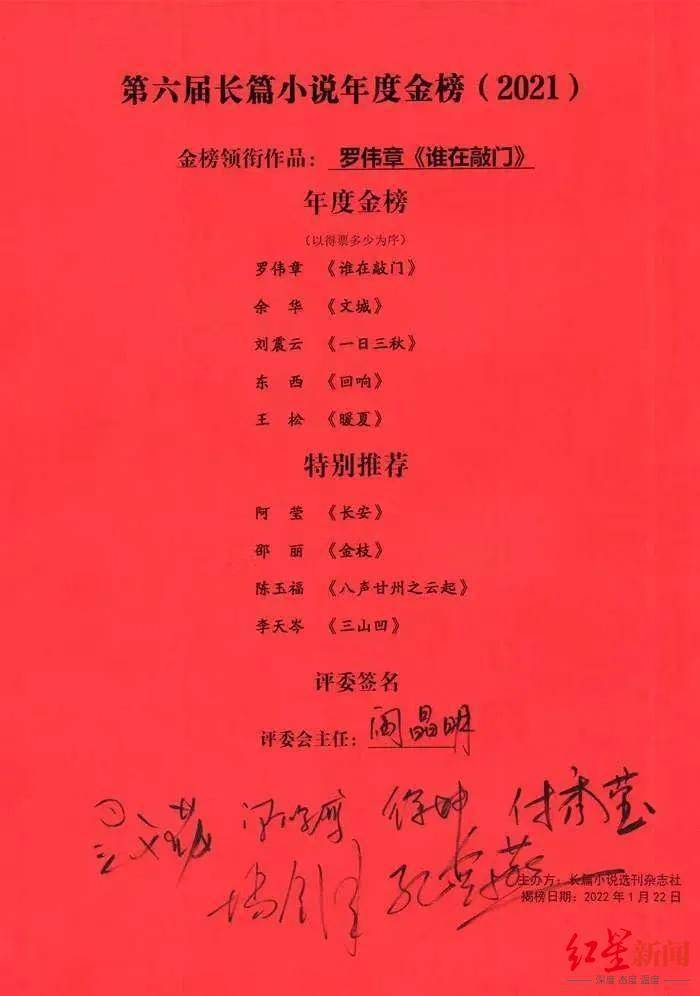 第六届长篇小说年度金榜（2021）
金榜领衔作品： 罗伟章《谁在敲门》
年度金榜
（以得票多少为序）
罗伟章 《谁在敲门》
余 华 《文城》
刘震云 《一日三秋》
东 西 《回响》
王 松 《暖夏》
特别推荐
阿 莹 《长安》
邵 丽 《金枝》
陈玉福 《八声甘州之云起》
李天岑 《三山凹》
评委签名
评委会主任：阎晶明
徐坤 付秀莹
主办方：长篇小说选刊杂志社
揭榜日期：2022 年 1 月 22 日
红星新闻
深度 态度 温度